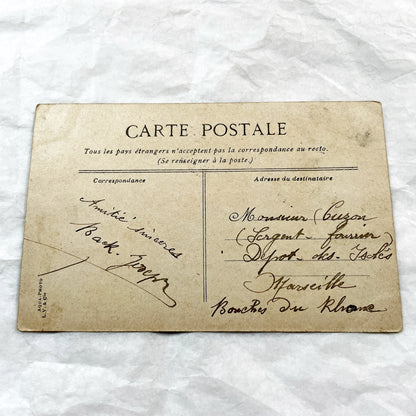 CARTE POSTALE
Tous les pays étrangers n'acceptent pas la correspondance au recto.
(Se renseigner à la poste.)
Correspondance
Adresse du destinataire
Amitié sincères
Back. Joseph
Monsieur Cuzon
(Sergent fourrier)
Dépot des Isolés
Marseille
Bouches du Rhone
Aqua-Photo
L.V. & Cie